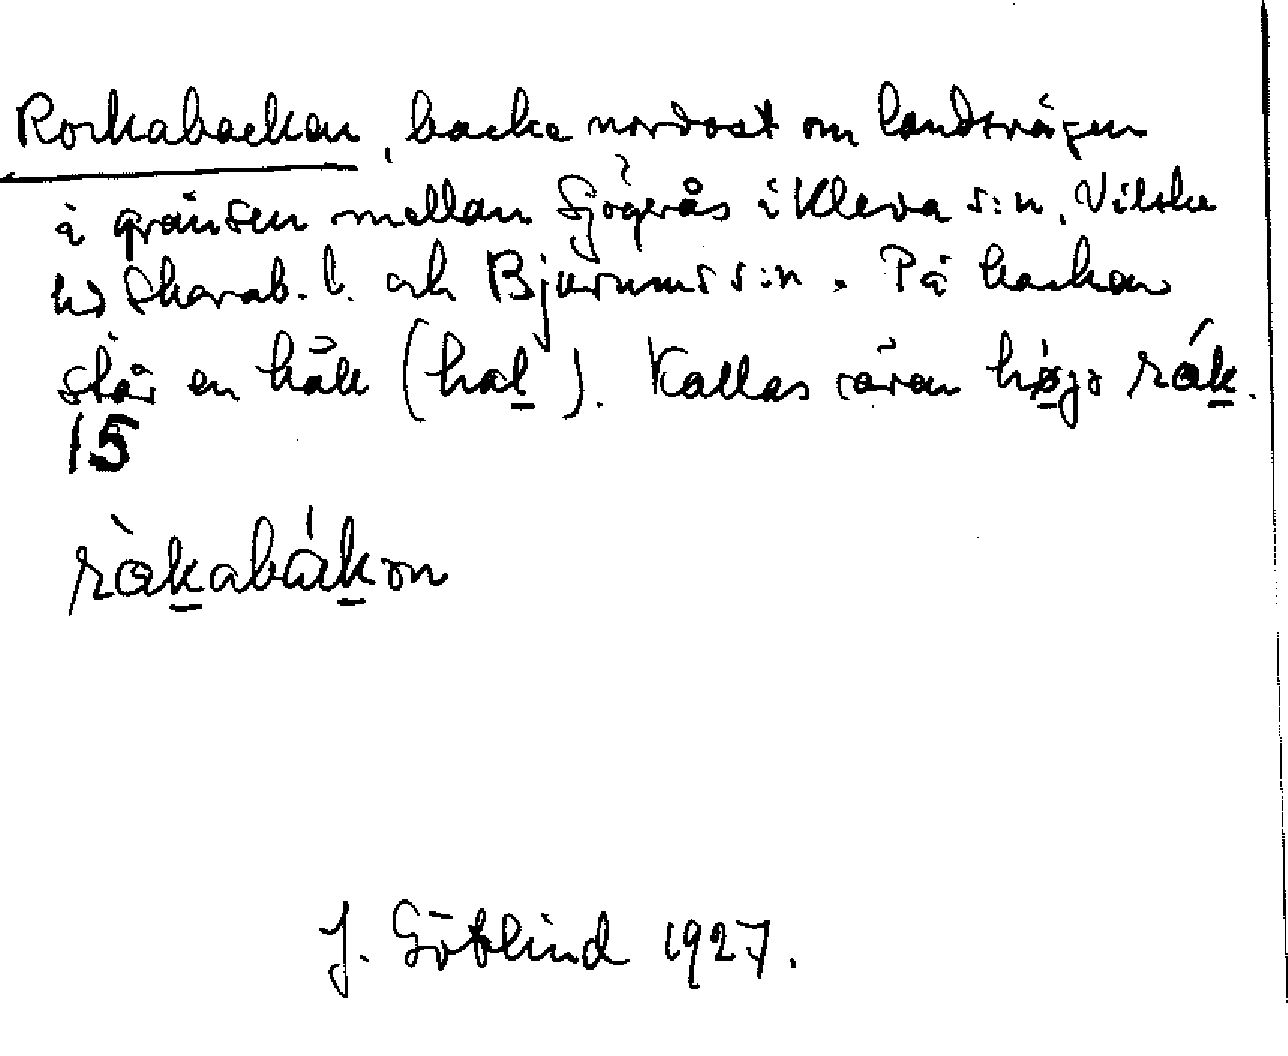 Rorkabackan, backe nordost om landsvägen
å gränsen mellan Sjögerås i Kleva s:n, Vilske
hd Skarab. l. och Bjurums s:n. På backen
står en håll (hal). Kallas även högo rák.
15
ràkabákon
J. Götlind 1927.